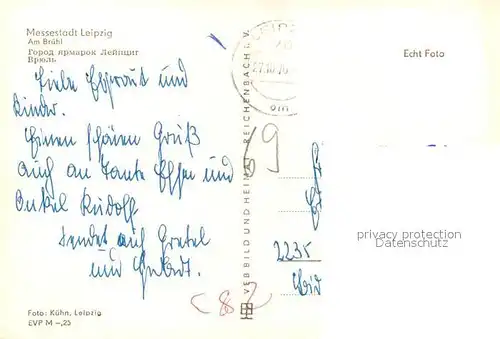 Messestadt Leipzig
Am Brühl
Город ярмарок Лейпциг
Брюль
Echt Foto
Liebe und
Kinder.
Einen schönen Gruß
auch an Tante und
Onkel Rudolf.
sendet auch Gretel
und
69
VEB BILD UND HEIMAT REICHENBACH i. V.
2235
privacy protection
Datenschutz
Foto: Kühn, Leipzig
EVP M -,25